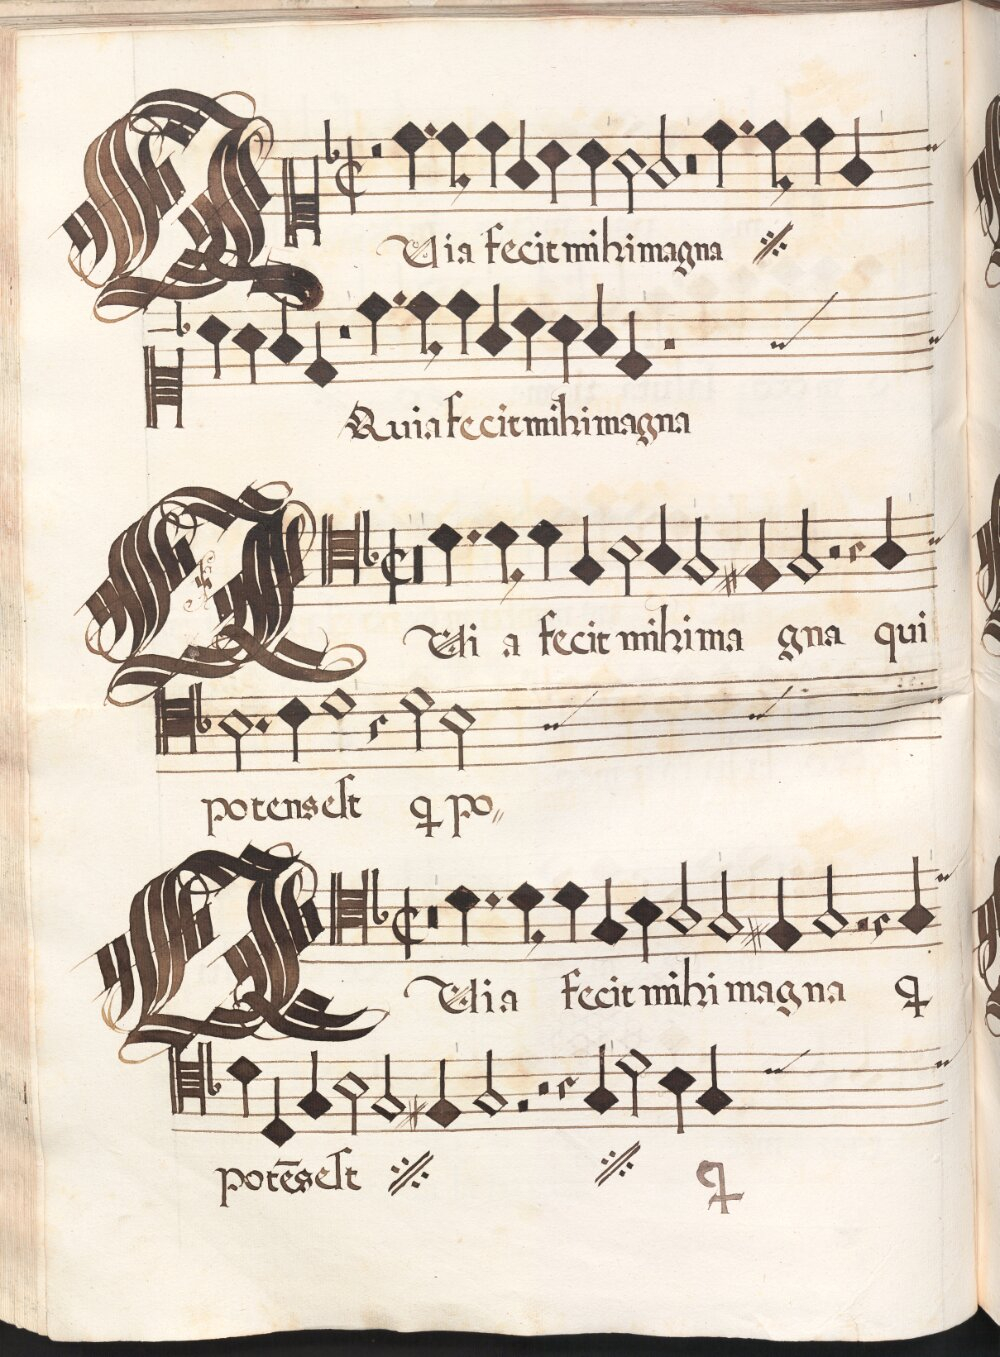 Quia fecit mihi magna
Quia fecit mihi magna
Qui a fecit mihi ma gna qui
potens est q po
Quia fecit mihi magna q
potēs est q